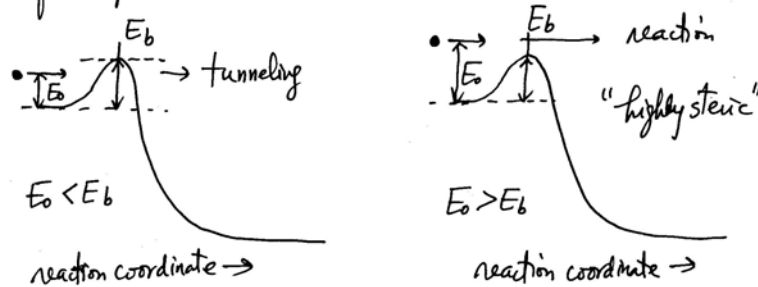 E_b
E_o
→ tunneling
E_o < E_b
reaction coordinate →
E_b
→ reaction
E_o
"highly steric"
E_o > E_b
reaction coordinate →